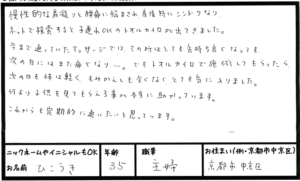 慢性的な肩凝りと腰痛に悩まされ産後特にシンドクなり、
ネットで検索すると子連れOKのオルカイロが出てきました。
今まで通っていたマッサージでは、その時はとても気持ち良くなっても
次の日にはまた痛くなり…。でもオルカイロで施術してもらったら、
次の日も体は軽く、もみかえしも全くなくて、とても気に入りました。
何より子供を見てもらえる事が本当に助かっています。
これからも定期的に通いたいと思っています。
ニックネームやイニシャルもOK
お名前 ひこうき
年齢 35
職業 主婦
お住まい(例:京都市中京区)
京都市中京区